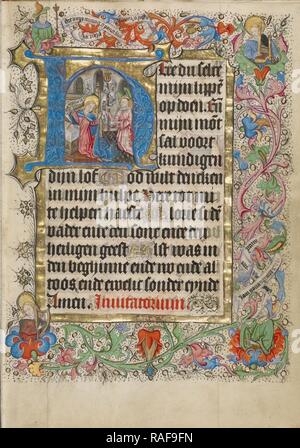 Here du selt
mijn lippē
op doen. Eñ
mijn mōt
sal voort
kundigen
dijn lof God wilt dencken
in mijn hulpe. Here
te helpen haeste si dē
vader ende den sone ende den
heiligen geest Alst was in
den beghinne ende nu ende al
toos, ende ewelic sonder eynde
Amen. Invitatorium
alamy
Image ID: RAF9FN
www.alamy.com